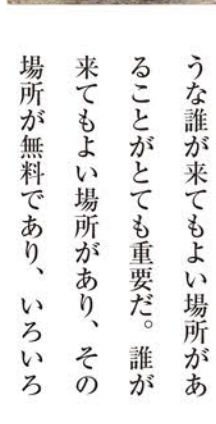 うな誰が来てもよい場所があ
ることがとても重要だ。誰が
来てもよい場所があり、その
場所が無料であり、いろいろ